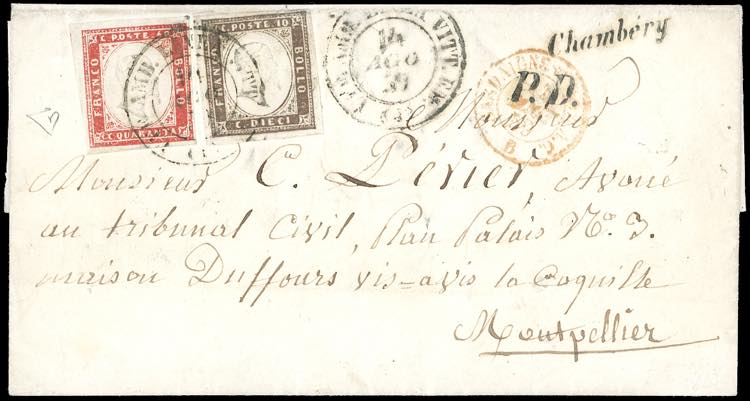 C. POSTE 40
FRANCO
BOLLO
C. QUARANTA
C. POSTE 10
FRANCO
BOLLO
C. DIECI
14
AGO
Chambéry
P.D.
Monsieur
Monsieur C. Périer, Avoué
au tribunal Civil, Plan Palais No. 3.
maison Duffours vis=avis la Coquille
Montpellier